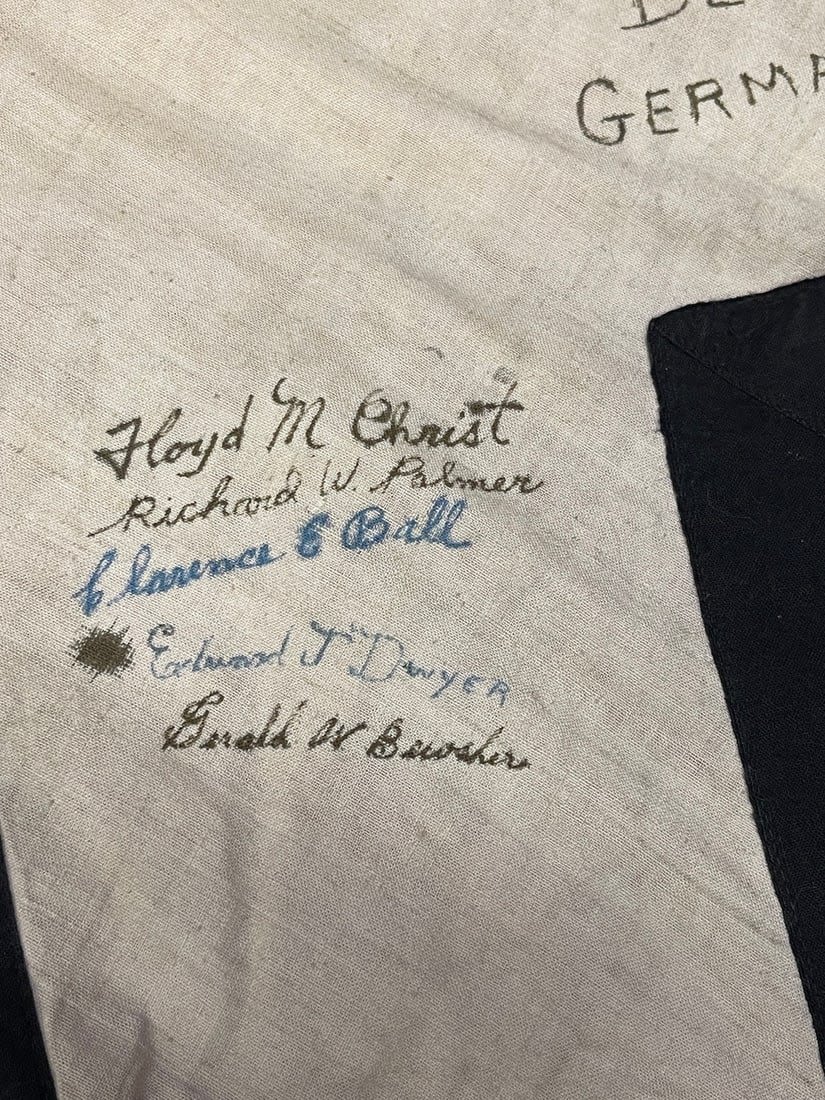 GERMA
Floyd M Christ
Richard W. Palmer
Clarence C Ball
Edward J Dwyer
Gerald W Bewsher